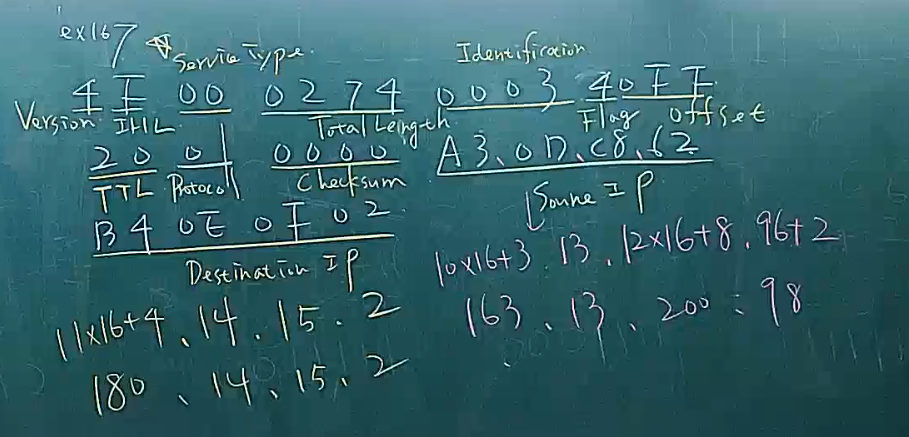 ex167
Service Type. Identification
4 F 00 0274 0003 40FF
Version. IHL. Total Length. Flag offset
20 01 0000 A3.0D.C8.62
TTL Protocol Checksum
B4 0E 0F 02 Source IP
Destination IP 10x16+3.13.12x16+8.96+2
11x16+4.14.15.2 163.13.200.98
180.14.15.2